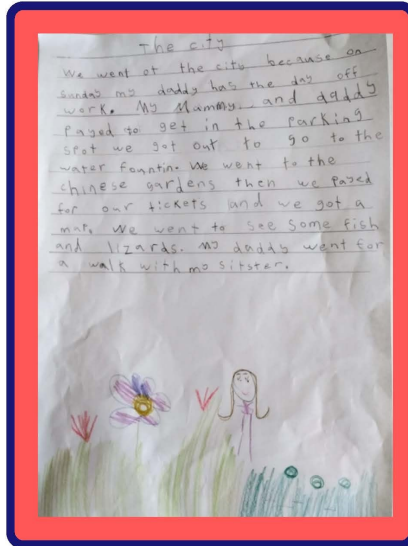 The city
We went ot the city because on
sunday my daddy has the day off
work. My Mammy. and daddy
Payed to get in the Parking
spot we got out to go to the
water fountin. We went to the
chinese gardens then we Payed
for our tickets and we got a
map. We went to see some fish
and lizards. my daddy went for
a walk with my sitster.